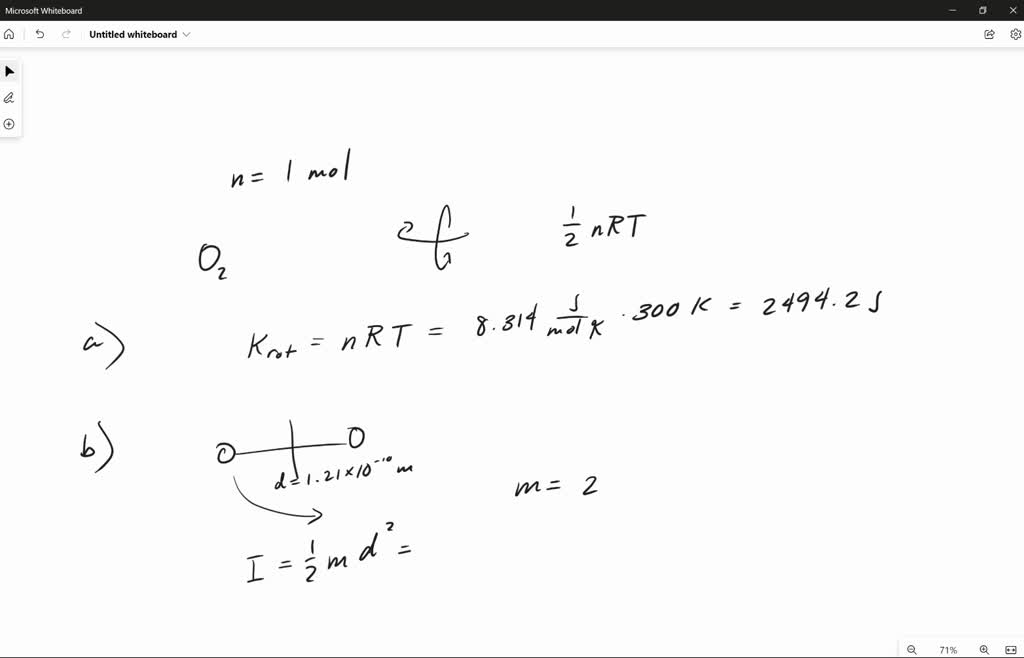 Microsoft Whiteboard
Untitled whiteboard
n = 1 mol
O₂
½ nRT
a) Krot = nRT = 8.314 J/mol K · 300 K = 2494.2 J
b)
O O
d = 1.21×10⁻¹⁰ m
m = 2
I = ½ m d² =
71%